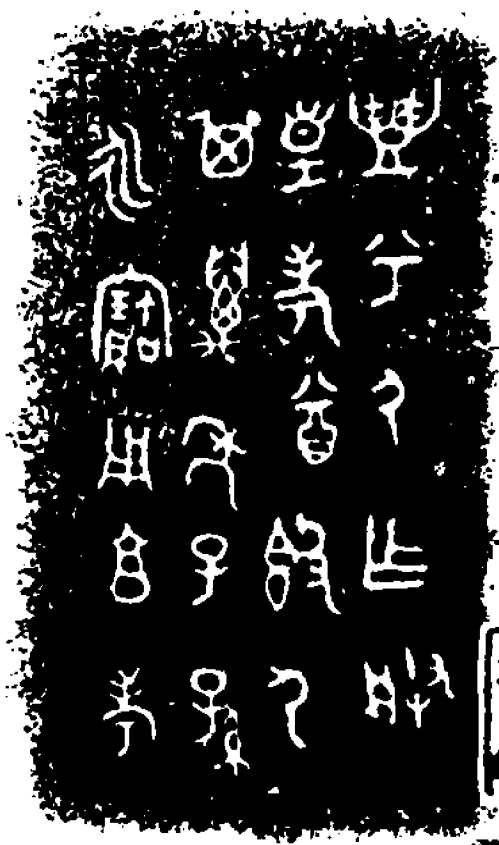 豐兮尸乍朕
皇考尊𣪘尸
其萬年子孫
永寶用享孝